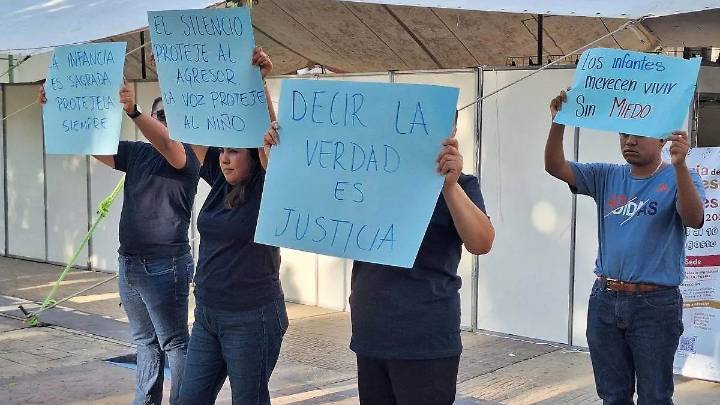 A INFANCIA
ES SAGRADA
PROTEJELA
SIEMPRE
EL SILENCIO
PROTEJE AL
AGRESOR
LA VOZ PROTEJE
AL NIÑO
DECIR LA
VERDAD
ES
JUSTICIA
Los infantes
merecen vivir
Sin MIEDO